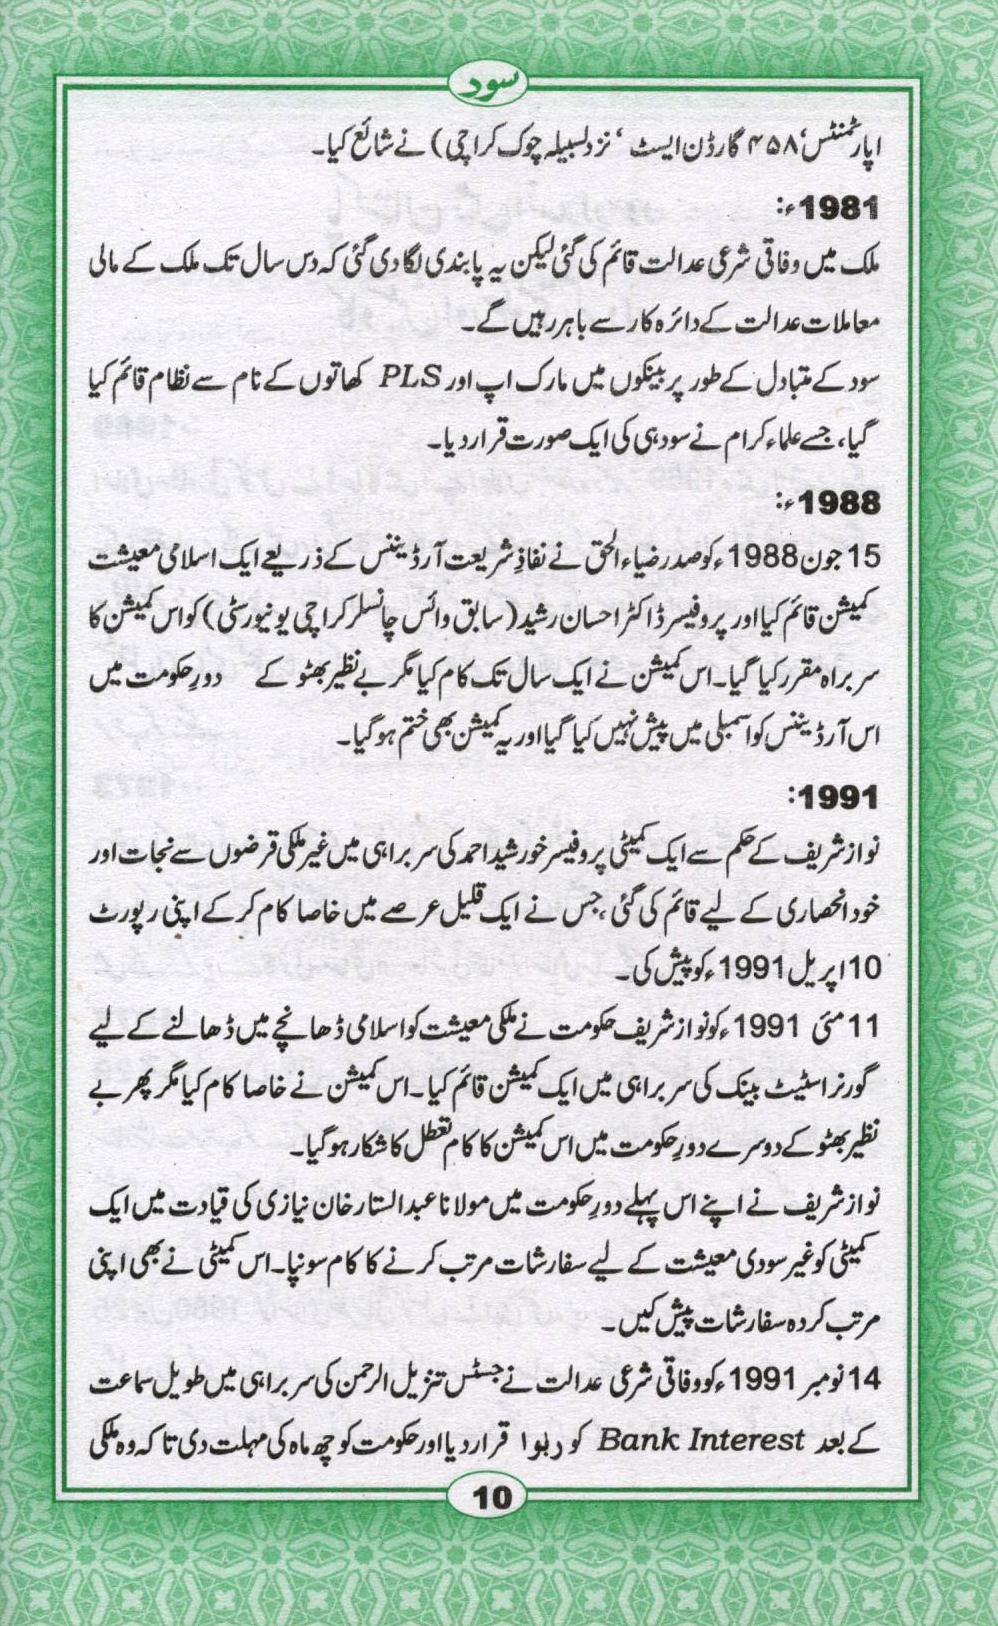 سود
اپارٹمنٹس‘ ۴۵۸ گارڈن ایسٹ ‘ نزد لسبیلہ چوک کراچی) نے شائع کیا۔
1981ء:
ملک میں وفاقی شرعی عدالت قائم کی گئی لیکن یہ پابندی لگا دی گئی کہ دس سال تک ملک کے مالی
معاملات عدالت کے دائرہ کار سے باہر رہیں گے۔
سود کے متبادل کے طور پر بینکوں میں مارک اپ اور PLS کھاتوں کے نام سے نظام قائم کیا
گیا، جسے علماء کرام نے سود ہی کی ایک صورت قرار دیا۔
1988ء:
15 جون 1988ء کو صدر ضیاء الحق نے نفاذِ شریعت آرڈیننس کے ذریعے ایک اسلامی معیشت
کمیشن قائم کیا اور پروفیسر ڈاکٹر احسان رشید (سابق وائس چانسلر کراچی یونیورسٹی) کو اس کمیشن کا
سربراہ مقرر کیا گیا۔ اس کمیشن نے ایک سال تک کام کیا مگر بے نظیر بھٹو کے دورِ حکومت میں
اس آرڈیننس کو اسمبلی میں پیش نہیں کیا گیا اور یہ کمیشن بھی ختم ہو گیا۔
1991:
نواز شریف کے حکم سے ایک کمیٹی پروفیسر خورشید احمد کی سربراہی میں غیر ملکی قرضوں سے نجات اور
خود انحصاری کے لیے قائم کی گئی، جس نے ایک قلیل عرصے میں خاصا کام کر کے اپنی رپورٹ
10 اپریل 1991ء کو پیش کی۔
11 مئی 1991ء کو نواز شریف حکومت نے ملکی معیشت کو اسلامی ڈھانچے میں ڈھالنے کے لیے
گورنر اسٹیٹ بینک کی سربراہی میں ایک کمیشن قائم کیا۔ اس کمیشن نے خاصا کام کیا مگر پھر بے
نظیر بھٹو کے دوسرے دورِ حکومت میں اس کمیشن کا کام تعطل کا شکار ہو گیا۔
نواز شریف نے اپنے اس پہلے دورِ حکومت میں مولانا عبدالستار خان نیازی کی قیادت میں ایک
کمیٹی کو غیر سودی معیشت کے لیے سفارشات مرتب کرنے کا کام سونپا۔ اس کمیٹی نے بھی اپنی
مرتب کردہ سفارشات پیش کیں۔
14 نومبر 1991ء کو وفاقی شرعی عدالت نے جسٹس تنزیل الرحمن کی سربراہی میں طویل سماعت
کے بعد Bank Interest کو ربوا قرار دیا اور حکومت کو چھ ماہ کی مہلت دی تاکہ وہ ملکی
10